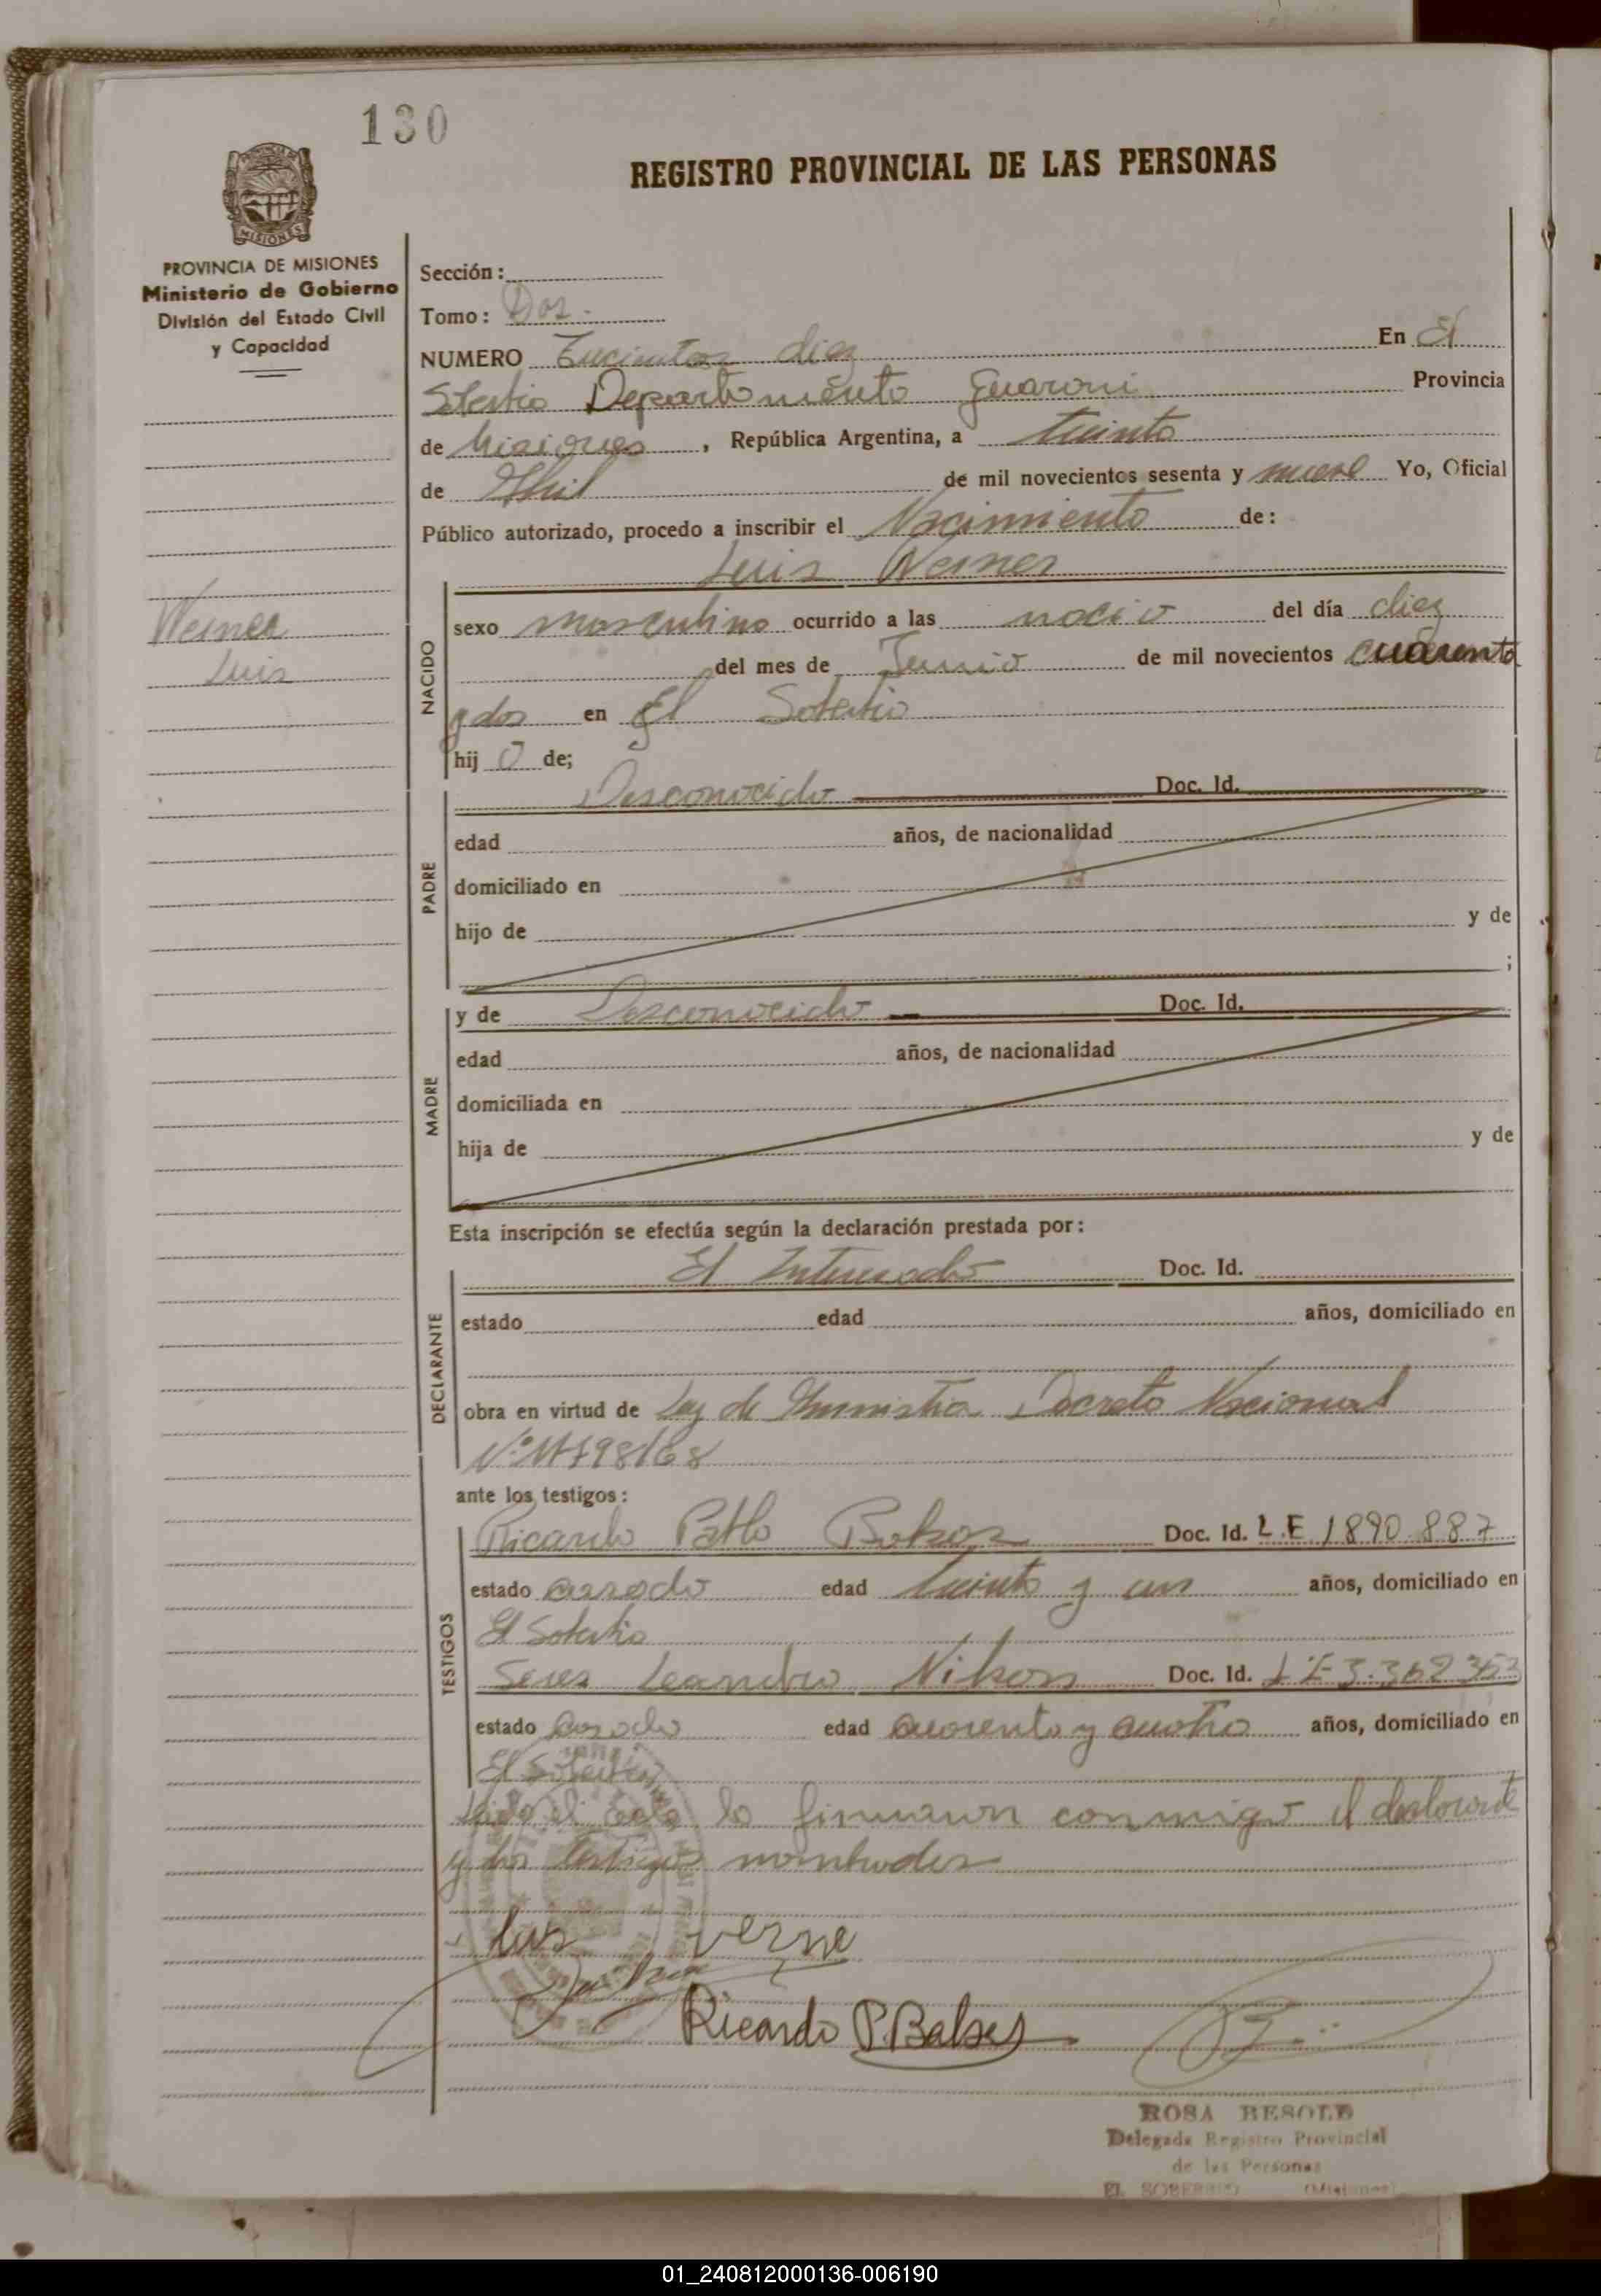 130
REGISTRO PROVINCIAL DE LAS PERSONAS
PROVINCIA DE MISIONES
MISIONES
PROVINCIA DE MISIONES
Ministerio de Gobierno
División del Estado Civil
y Capacidad
Sección:
Tomo: Dos.
NUMERO Trecientos diez En El
Soberbio Departamento Guarani Provincia
de Misiones, República Argentina, a treinta
de Abril de mil novecientos sesenta y nueve Yo, Oficial
Público autorizado, procedo a inscribir el Nacimiento de:
Luis
Luis
NACIDO
sexo masculino ocurrido a las del día diez
del mes de Junio de mil novecientos cuarenta
y dos en El Soberbio
hij o de;
PADRE
Desconocido Doc. Id.
edad años, de nacionalidad
domiciliado en
hijo de y de
;
MADRE
y de Desconocido Doc. Id.
edad años, de nacionalidad
domiciliada en
hija de y de
Esta inscripción se efectúa según la declaración prestada por:
DECLARANTE
El Doc. Id.
estado edad años, domiciliado en
obra en virtud de Ley de Amnistia Decreto Nacional
ante los testigos:
TESTIGOS
Ricardo Pablo Doc. Id. L.E 1890.887
estado casado edad treinta y un años, domiciliado en
El Soberbio
Leandro Nilson Doc. Id.
estado casado edad cuarenta y cuatro años, domiciliado en
El Soberbio
la firmaron conmigo el declarante
y los testigos nombrados
Luis verne
Ricardo P. Balses
ROSA BESOLD
Delegada Registro Provincial
de las Personas
EL SOBERBIO (Misiones)
01_240812000136-006190